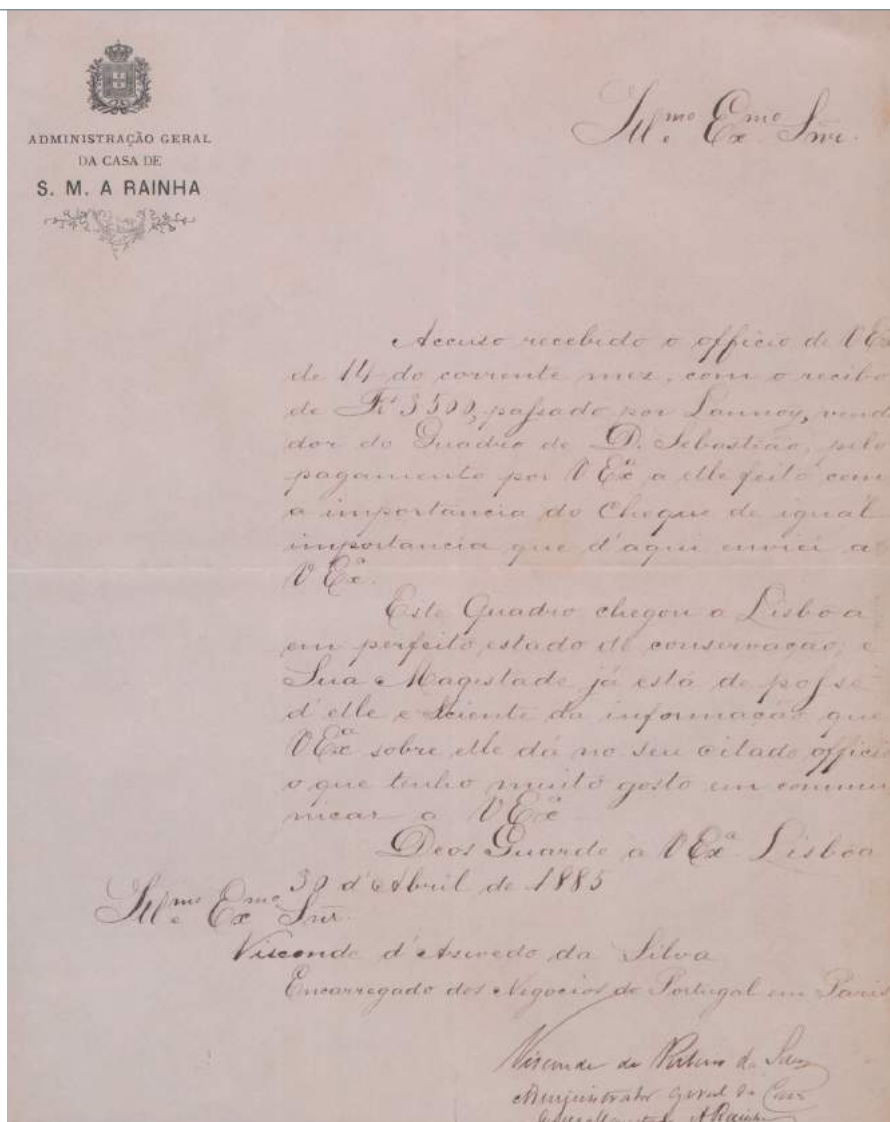 ADMINISTRAÇÃO GERAL
DA CASA DE
S. M. A RAINHA
Ill.mo e Ex.mo Snr.
Accuso recebido o officio de V Ex
de 14 do corrente mez, com o recibo
de Fr 3500, passado por Launoy, vend
dor do Quadro de D. Sebastião, pelo
pagamento por V Exª a elle feito com
a importancia do Cheque de igual
importancia que d'aqui enviei a
V Exª.
Este Quadro chegou a Lisboa
em perfeito estado de conservação, e
Sua Magestade já está de posse
d'elle e sciente da informação que
V Exª sobre elle dá no seu citado officio
o que tenho muito gosto em commu
nicar a V Exª
Deos Guarde a V Exª. Lisboa
30 d'Abril de 1885
Ill.mo e Ex.mo Snr.
Visconde d'Azevedo da Silva
Encarregado dos Negocios de Portugal em Paris
Visconde de da
Administrador Geral da Casa
A Rainha